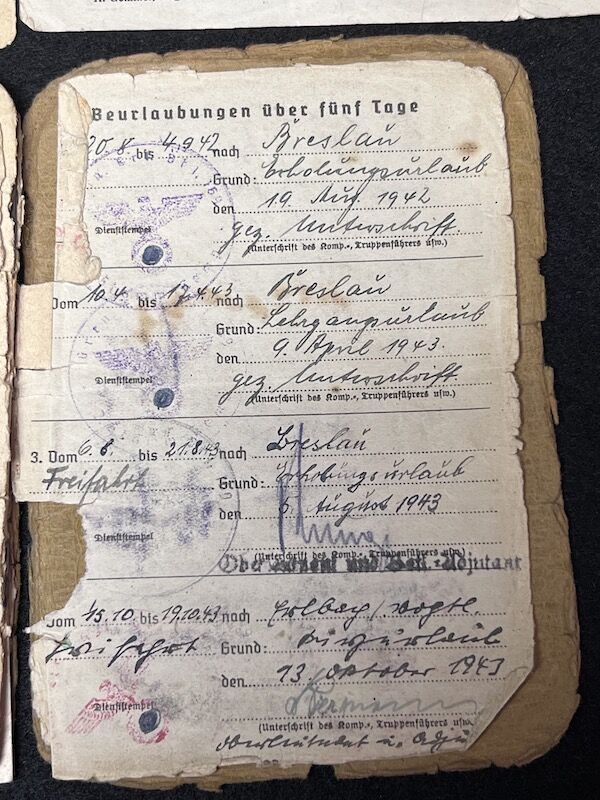 Beurlaubungen über fünf Tage
20.8. bis 4.9.42 nach Breslau
Grund: Erholungsurlaub
den 19. Aug. 1942
gez. Unterschrift.
Dienststempel
(Unterschrift des Komp.-, Truppenführers usw.)
Vom 10.4. bis 17.4.43 nach Breslau
Grund: Lehrgangsurlaub
den 9. April 1943
gez. Unterschrift.
Dienststempel
(Unterschrift des Komp.-, Truppenführers usw.)
3. Vom 6.8. bis 21.8.43 nach Breslau
Freifahrt Grund: Erholungsurlaub
den 6. August 1943
Dienststempel
(Unterschrift des Komp.-, Truppenführers usw.)
und -Adjutant
Vom 15.10. bis 19.10.43 nach Erlbach/Vogtl.
Freifahrt Grund: Kurzurlaub
den 13. Oktober 1943
Dienststempel
(Unterschrift des Komp.-, Truppenführers usw.
Oberleutnant u. Adju